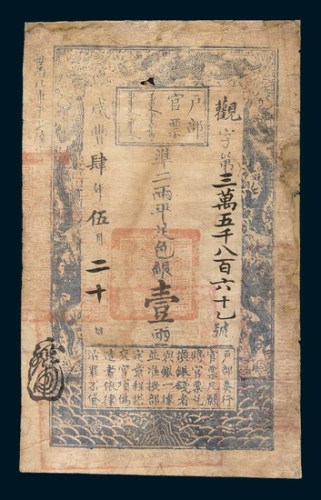 戶部
官票
觀字第三萬五千八百六十乙號
準二兩平足色銀壹兩
咸豐肆年伍月二十日
戶部奏行
官票凡願
將官票兌
換銀錢者
與銀一律
並准按部
定章程搭
交官項偽
造者依律
治罪不貸